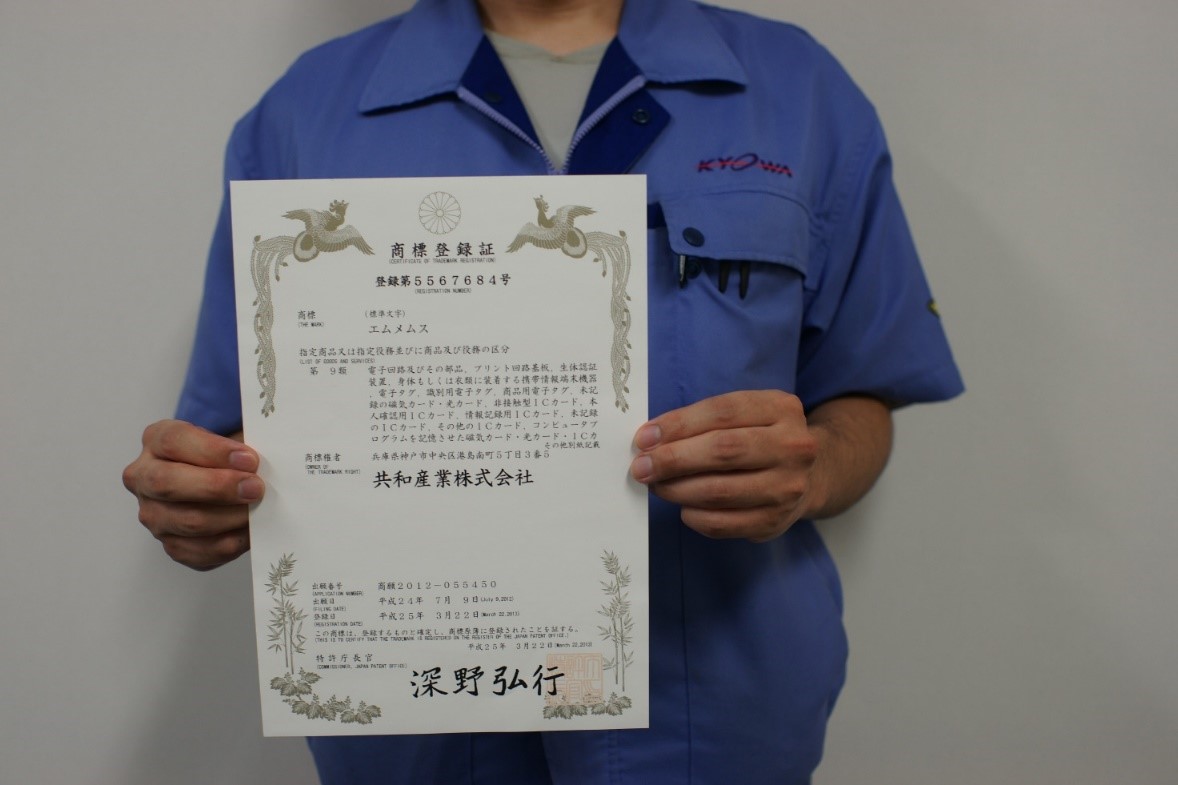 KYOWA
商標登録証
(CERTIFICATE OF TRADEMARK REGISTRATION)
登録第5567684号
(REGISTRATION NUMBER)
商標 (標準文字)
(THE MARK)
エムメムス
指定商品又は指定役務並びに商品及び役務の区分
(LIST OF GOODS AND SERVICES)
第 9類 電子回路及びその部品、プリント回路基板、生体認証
装置、身体もしくは衣類に装着する携帯情報端末機器
、電子タグ、識別用電子タグ、商品用電子タグ、未記
録の磁気カード・光カード、非接触型ICカード、本
人確認用ICカード、情報記録用ICカード、未記録
のICカード、その他のICカード、コンピュータプ
ログラムを記憶させた磁気カード・光カード・ICカ
その他別紙記載
商標権者 兵庫県神戸市中央区港島南町5丁目3番5
(OWNER OF
THE TRADEMARK RIGHT)
共和産業株式会社
出願番号 商願2012-055450
(APPLICATION NUMBER)
出願日 平成24年 7月 9日(July 9,2012)
(FILING DATE)
登録日 平成25年 3月22日(March 22,2013)
(REGISTRATION DATE)
この商標は、登録するものと確定し、商標原簿に登録されたことを証する。
(THIS IS TO CERTIFY THAT THE TRADEMARK IS REGISTERED ON THE REGISTER OF THE JAPAN PATENT OFFICE.)
平成25年 3月22日(March 22,2013)
特許庁長官
(COMMISSIONER, JAPAN PATENT OFFICE)
深野弘行